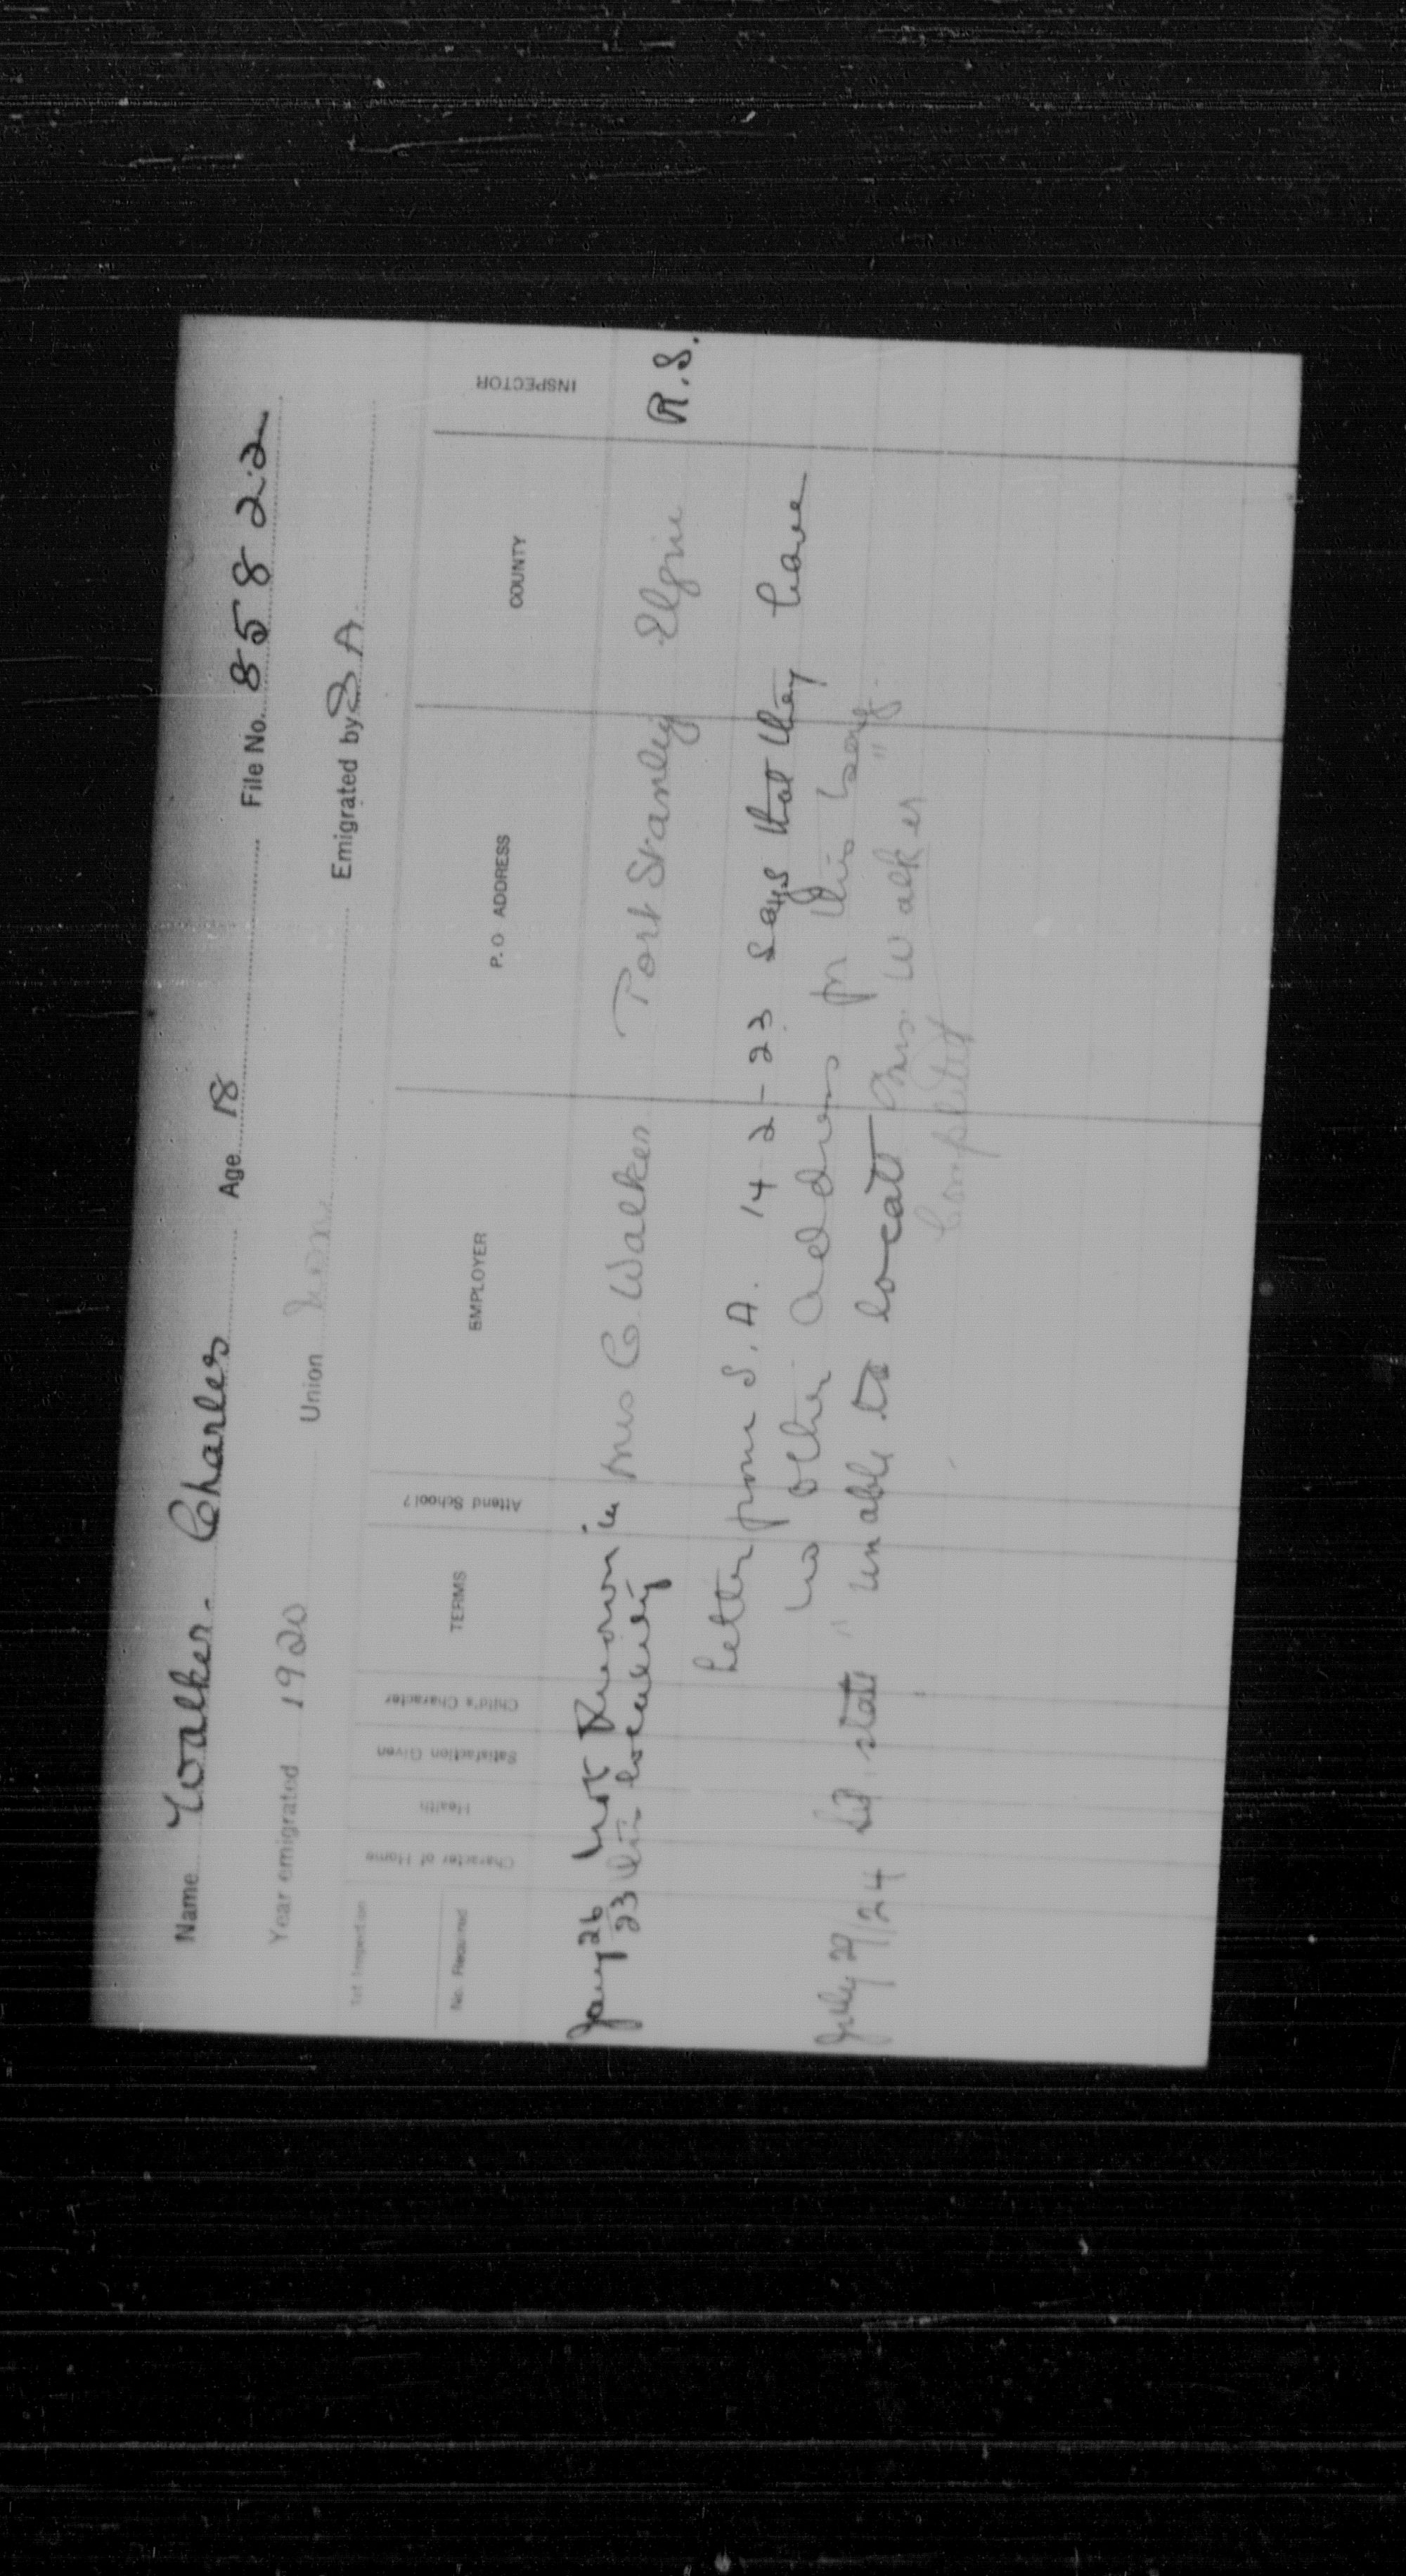 Name Walker. Charles Age 18 File No. 85822
Year emigrated 1920 Union Emigrated by S A
1st Inspection
No. Required Character of Home Health Satisfaction Given Child's Character TERMS Attend School? EMPLOYER P.O ADDRESS COUNTY INSPECTOR
Jany 26 Not Known in Mrs C. Walker Port Stanley Elgin R.S.
23 this locality
Letter from S. A. 14-2-23 says that they have
no other address for this boy.
July 29/24 S.A. state "unable to locate Chas Walker"
Completed